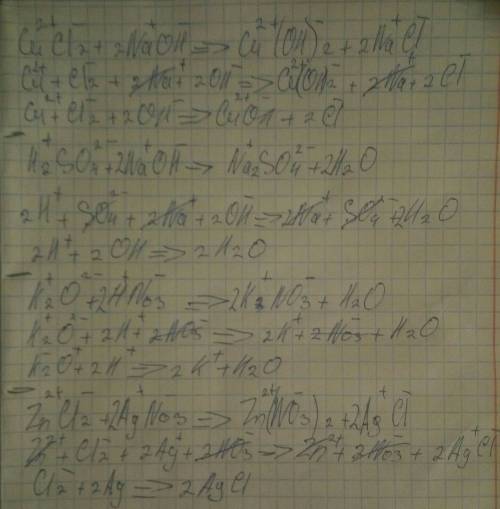 Cu²⁺Cl₂⁻ + 2Na⁺OH⁻ => Cu²⁺(OH)⁻₂ + 2Na⁺Cl⁻
Cu²⁺ + Cl₂⁻ + 2Na⁺ + 2OH⁻ => Cu²⁺(OH)₂⁻ + 2Na⁺ + 2Cl⁻
Cu²⁺ + Cl₂⁻ + 2OH⁻ => Cu²⁺OH⁻ + 2Cl⁻
H₂⁺SO₄²⁻ + 2Na⁺OH⁻ => Na₂⁺SO₄²⁻ + 2H₂O
2H⁺ + SO₄²⁻ + 2Na⁺ + 2OH⁻ => 2Na⁺ + SO₄²⁻ + 2H₂O
2H⁺ + 2OH⁻ => 2H₂O
K₂⁺O²⁻ + 2H⁺NO₃⁻ => 2K⁺NO₃⁻ + H₂O
K₂⁺O²⁻ + 2H⁺ + 2NO₃⁻ => 2K⁺ + 2NO₃⁻ + H₂O
K₂O + 2H⁺ => 2K⁺ + H₂O
Zn²⁺Cl₂⁻ + 2Ag⁺NO₃⁻ => Zn²⁺(NO₃)⁻₂ + 2Ag⁺Cl⁻
Zn²⁺ + Cl₂⁻ + 2Ag⁺ + 2NO₃⁻ => Zn²⁺ + 2NO₃⁻ + 2Ag⁺Cl⁻
Cl₂⁻ + 2Ag => 2AgCl